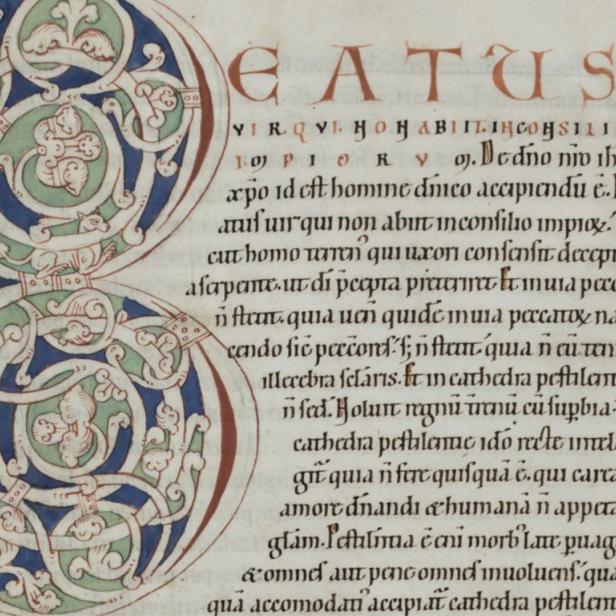 BEATUS
VIR QVI NON ABIIT IN CONSILI
IM PIORVM. De dño nr̃o ih
xp̄o id est homine dñico accipiendũ ẽ.
atus uir qui non abiit in consilio impioꝝ.
cut homo terren᾽ qui uxori consensit decept
a serpente. ut di p̄cepta preteriret. Et in uia pecc
ñ stetit. quia uenit quidẽ in uia peccatoꝝ na
cendo sic pecc̃ores. s; ñ stetit quia ñ eũ ten
illecebra sc̃laris. Et in cathedra pestilent
ñ sed. Noluit regnũ t̃renũ cũ sup̱bia.
cathedra pestilentie ido᾽ recte intel
git̃ quia ñ fere quisquã ẽ. qui care
amore dñandi & humanã ñ appeta
glãm. Pestilentia ẽ eni morb᾽ late p̱uag
& omnes aut pene omnes inuoluens. qua
quã accomodati᾽ accipiat᾽ cathedra pestilen